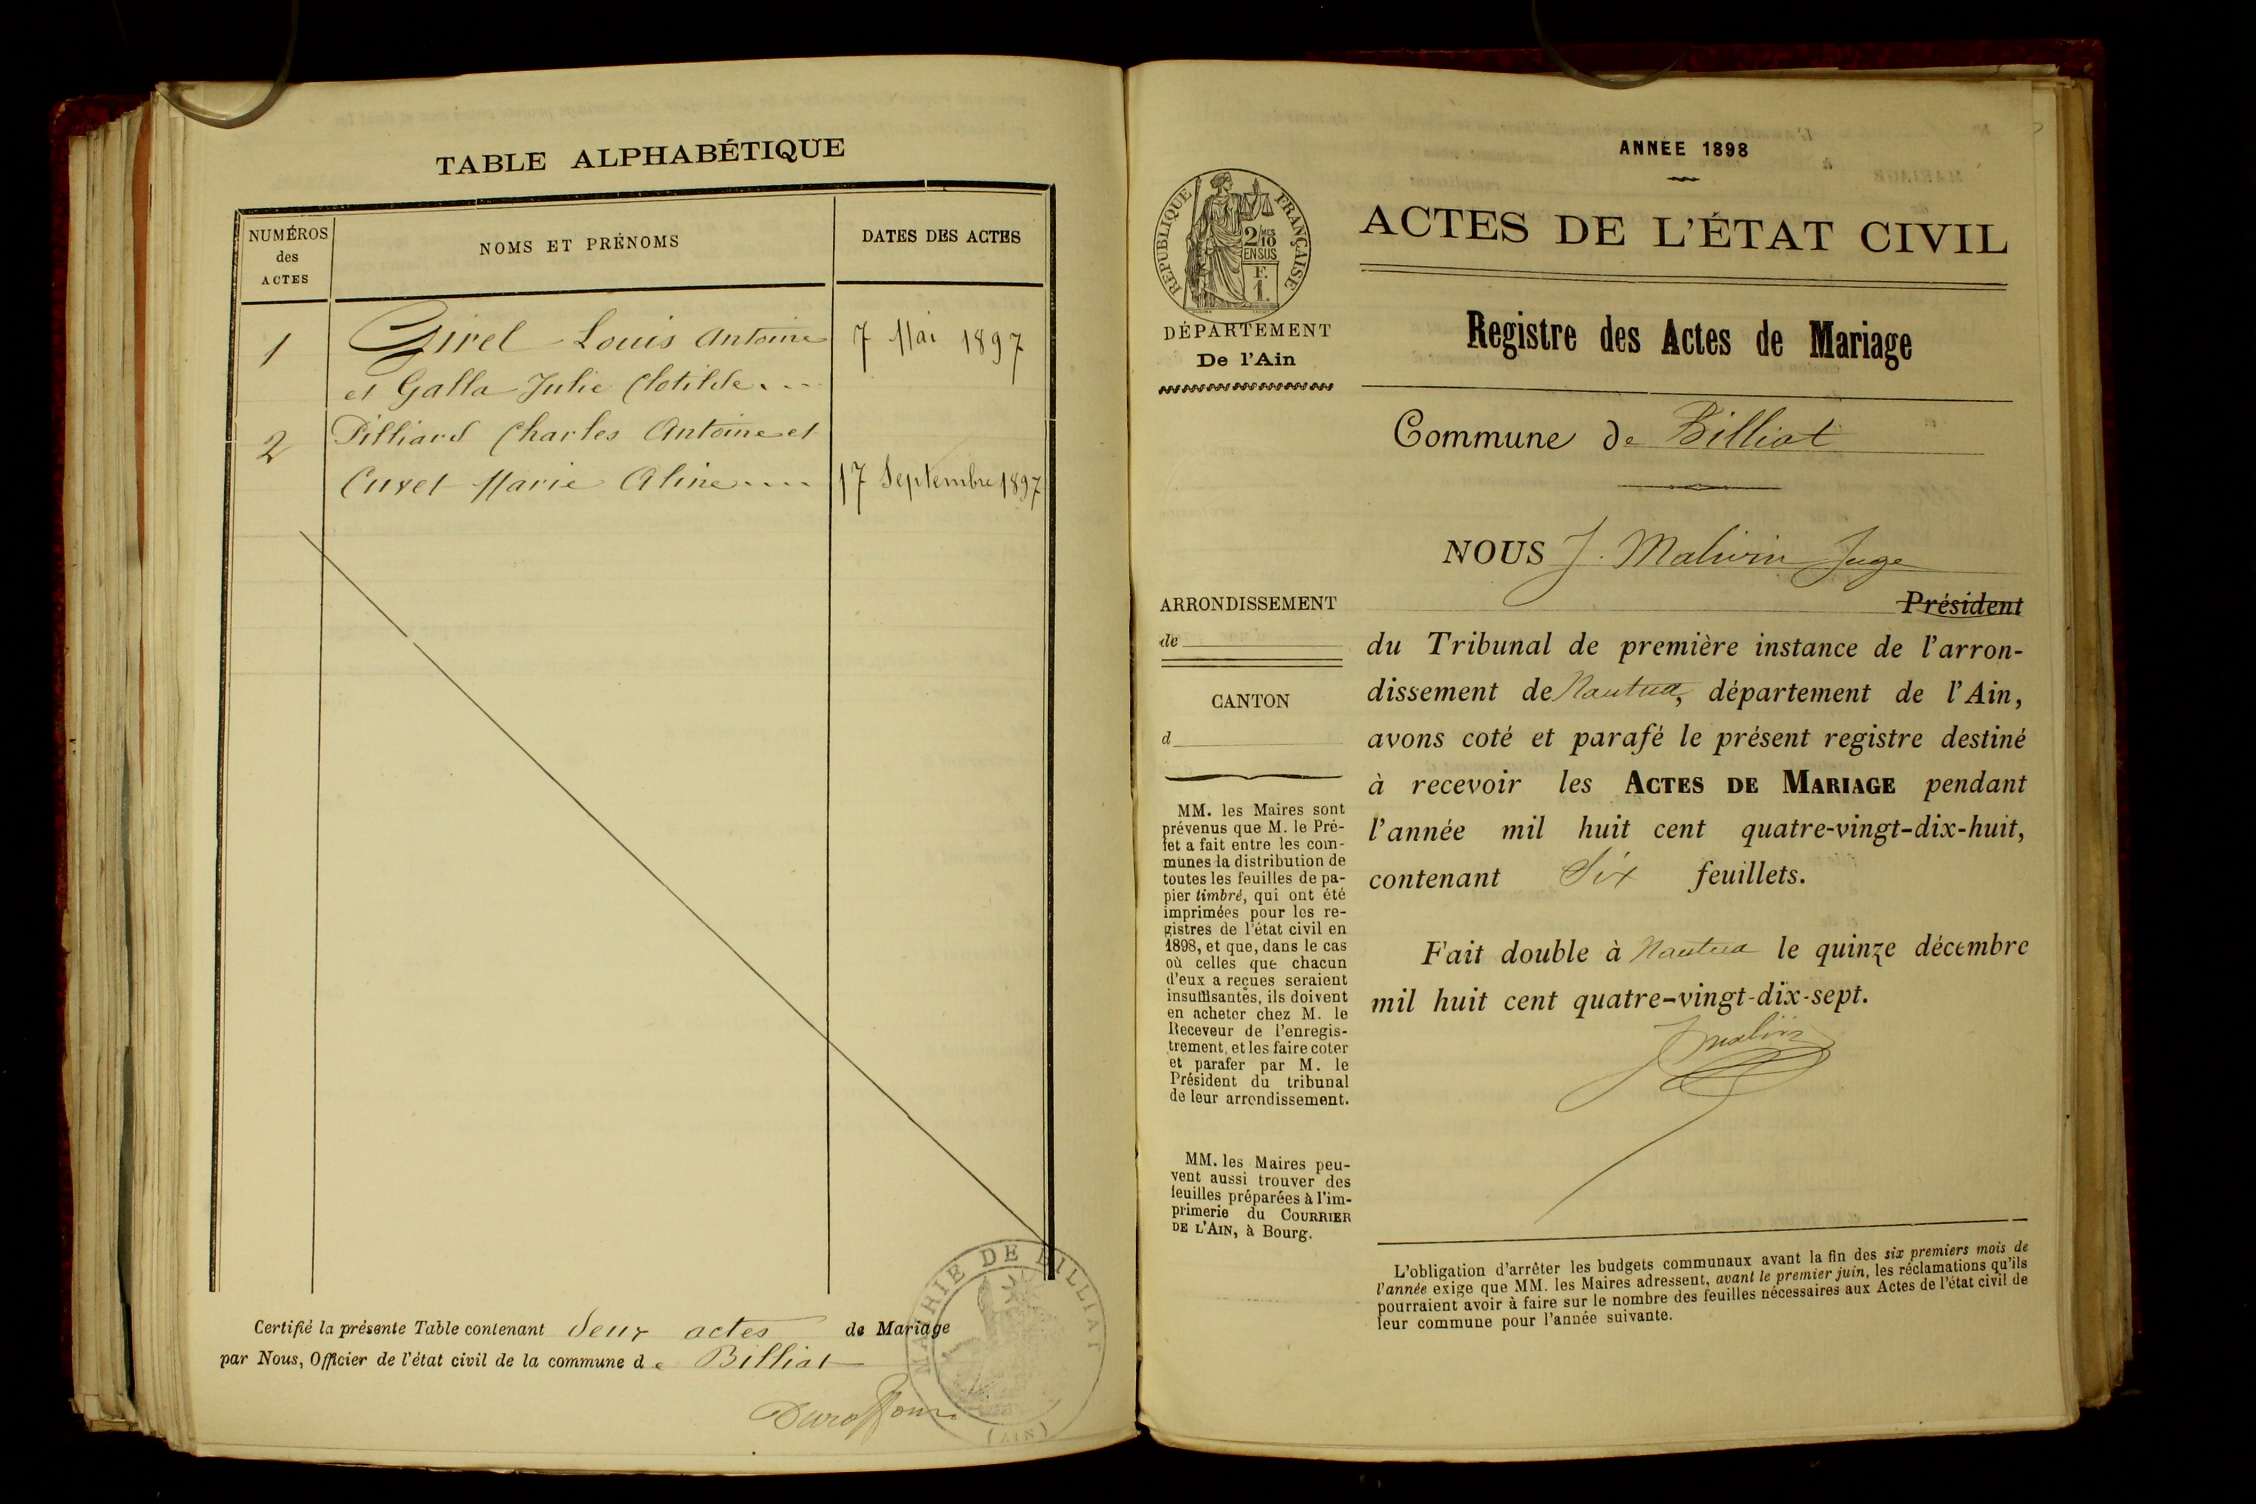 TABLE ALPHABÉTIQUE
NUMÉROS
des
ACTES
NOMS ET PRÉNOMS
DATES DES ACTES
1
Girel Louis Antoine
7 Mai 1897
et Galla Julie Clotilde
2
Pilliard Charles Antoine et
Cuvet Marie Aline
17 Septembre 1897
Certifié la présente Table contenant deux actes de Mariage
par Nous, Officier de l'état civil de la commune de Billiat
MAIRIE DE BILLIAT
(AIN)
ANNÉE 1898
RÉPUBLIQUE FRANÇAISE
2/10
EN SUS
F.
1.
DÉPARTEMENT
De l'Ain
ACTES DE L'ÉTAT CIVIL
Registre des Actes de Mariage
Commune de Billiat
NOUS J. Malivin Juge
Président
ARRONDISSEMENT
de
CANTON
d
du Tribunal de première instance de l'arron-
dissement de Nantua, département de l'Ain,
avons coté et parafé le présent registre destiné
à recevoir les ACTES DE MARIAGE pendant
l'année mil huit cent quatre-vingt-dix-huit,
contenant Six feuillets.
Fait double à Nantua le quinze décembre
mil huit cent quatre-vingt-dix-sept.
MM. les Maires sont
prévenus que M. le Pré-
fet a fait entre les com-
munes la distribution de
toutes les feuilles de pa-
pier timbré, qui ont été
imprimées pour les re-
gistres de l'état civil en
1898, et que, dans le cas
où celles que chacun
d'eux a reçues seraient
insuffisantes, ils doivent
en acheter chez M. le
Receveur de l'enregis-
trement, et les faire coter
et parafer par M. le
Président du tribunal
de leur arrondissement.
MM. les Maires peu-
vent aussi trouver des
feuilles préparées à l'im-
primerie du COURRIER
DE L'AIN, à Bourg.
L'obligation d'arrêter les budgets communaux avant la fin des six premiers mois de
l'année exige que MM. les Maires adressent, avant le premier juin, les réclamations qu'ils
pourraient avoir à faire sur le nombre des feuilles nécessaires aux Actes de l'état civil de
leur commune pour l'année suivante.